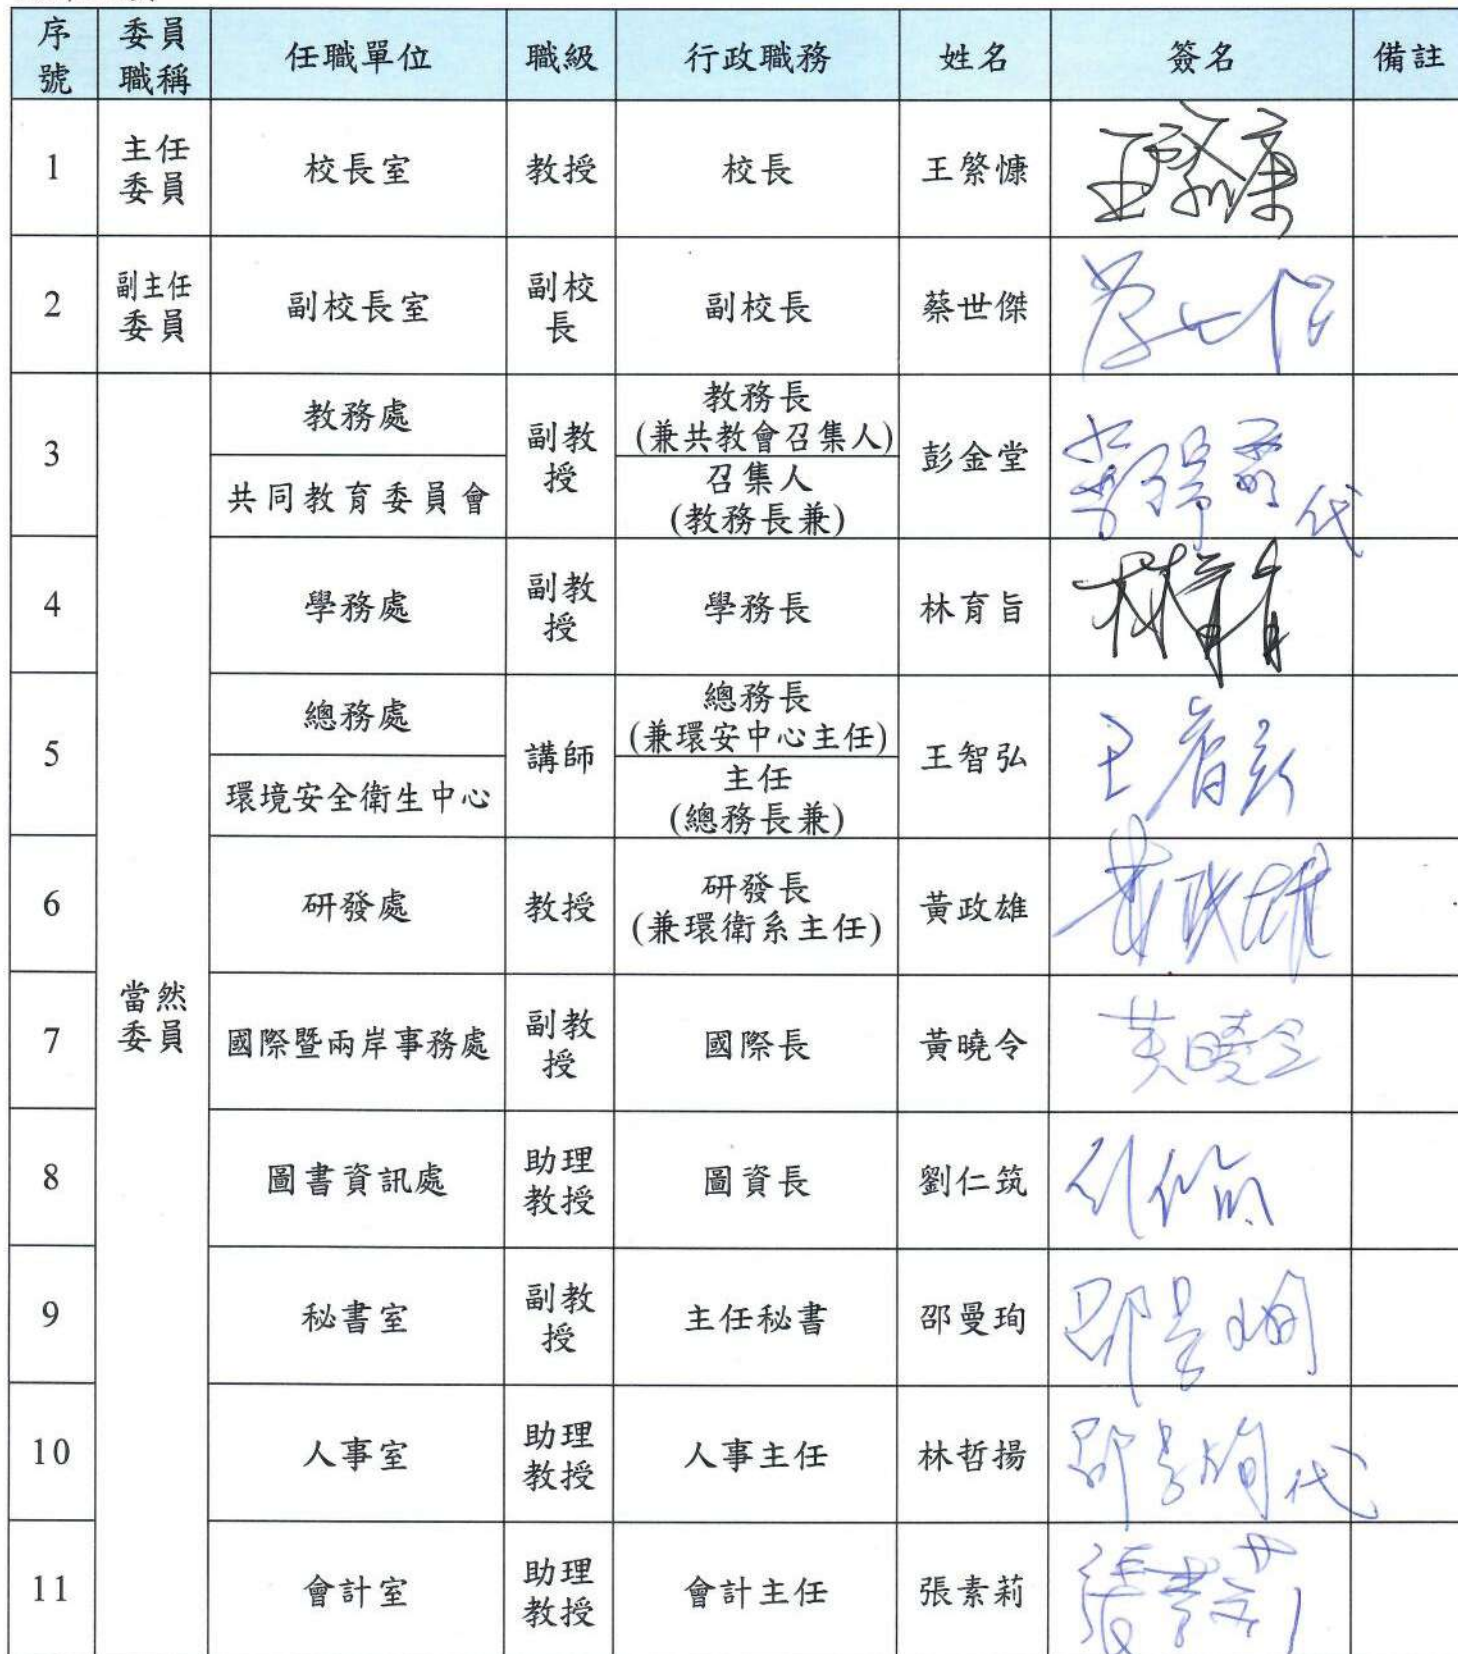 序號 委員職稱 任職單位 職級 行政職務 姓名 簽名 備註
1 主任委員 校長室 教授 校長 王綮慷 王綮慷
2 副主任委員 副校長室 副校長 副校長 蔡世傑
3 當然委員 教務處 副教授 教務長 (兼共教會召集人) 彭金堂 代
共同教育委員會 召集人 (教務長兼)
4 學務處 副教授 學務長 林育旨 林育旨
5 總務處 講師 總務長 (兼環安中心主任) 王智弘 王智弘
環境安全衛生中心 主任 (總務長兼)
6 研發處 教授 研發長 (兼環衛系主任) 黃政雄 黃政雄
7 國際暨兩岸事務處 副教授 國際長 黃曉令 黃曉令
8 圖書資訊處 助理教授 圖資長 劉仁筑
9 秘書室 副教授 主任秘書 邵曼珣 邵曼珣
10 人事室 助理教授 人事主任 林哲揚 邵曼珣代
11 會計室 助理教授 會計主任 張素莉 張素莉